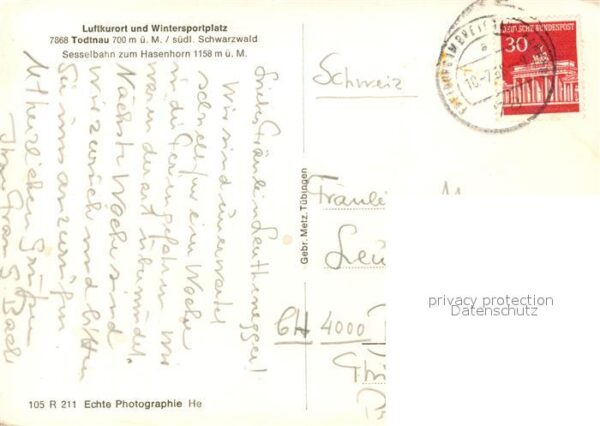 Luftkurort und Wintersportplatz
7868 Todtnau 700 m ü. M. / südl. Schwarzwald
Sesselbahn zum Hasenhorn 1158 m ü. M.
Liebes Fräulein Leuthenegger!
Wir sind unerwartet
schnell für eine Woche
in die Ferien gefahren wir
waren derart
Nächste Woche sind
wir zurück und bitten
Sie uns anzurufen
Mit herzlichen Grüßen
Ihre Frau G. Bach
105 R 211 Echte Photographie He
Gebr. Metz, Tübingen
DEUTSCHE BUNDESPOST
30
Schweiz
Fräulein
CH 4000
privacy protection
Datenschutz